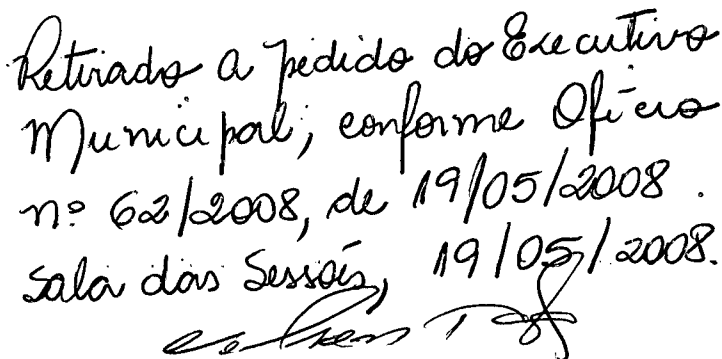 Retirado a pedido do Executivo
Municipal, conforme Ofício
nº 62/2008, de 19/05/2008.
Sala das Sessões, 19/05/2008.